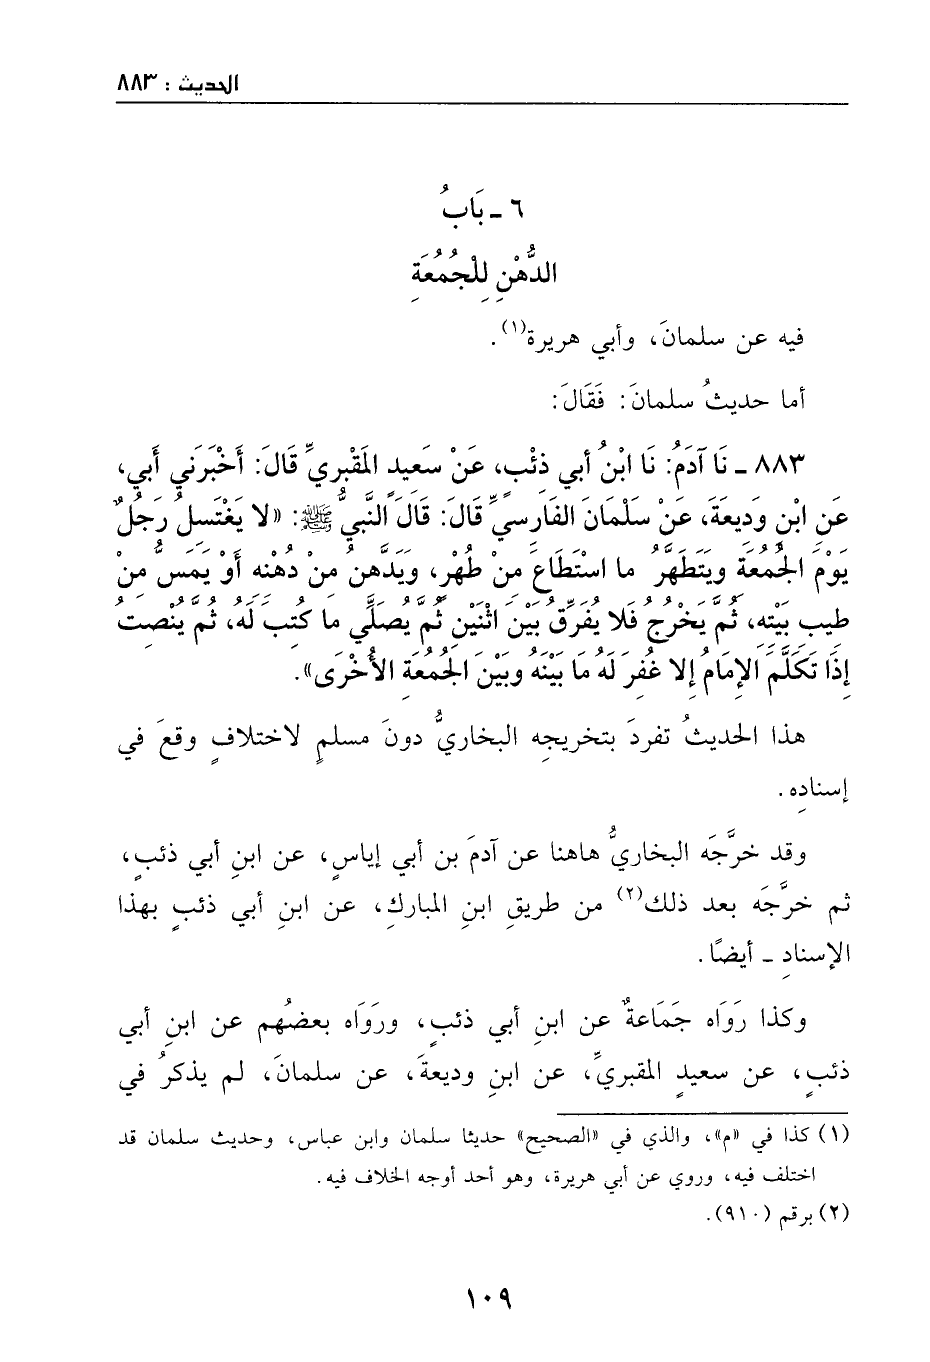 الحديث : ٨٨٣
٦ ـ بَابُ
الدُّهْنِ لِلْجُمُعَةِ
فيه عن سلمانَ، وأبي هريرة(١).
أما حديثُ سلمانَ: فَقَالَ:
٨٨٣ ـ نَا آدَمُ: نَا ابْنُ أبي ذئْبٍ، عَنْ سَعيدٍ المَقْبريِّ قَالَ: أَخْبَرَني أَبي،
عَنِ ابْنِ وَديعَةَ، عَنْ سَلْمَانَ الفَارسيِّ قَالَ: قَالَ النَّبيُّ ﷺ: «لا يَغْتَسلُ رَجُلٌ
يَوْمَ الجُمُعَةِ ويَتَطَهَّرُ ما اسْتَطَاعَ مِنْ طُهْرٍ، وَيَدَّهنُ منْ دُهْنه أَوْ يَمَسُّ مِنْ
طيبِ بَيْتِهِ، ثُمَّ يَخْرُجُ فَلا يُفَرِّقُ بَيْنَ اثْنَيْنِ ثُمَّ يُصَلِّي ما كُتبَ لَهُ، ثُمَّ يُنْصتُ
إذَا تَكَلَّمَ الإمَامُ إلا غُفِرَ لَهُ مَا بَيْنَهُ وبَيْنَ الجُمُعَةِ الأُخْرَى».
هذا الحديثُ تفردَ بتخريجِه البخاريُّ دونَ مسلمٍ لاختلافٍ وقعَ في
إسنادِه.
وقد خرَّجَه البخاريُّ هاهنا عن آدمَ بن أبي إياسٍ، عن ابنِ أبي ذئبٍ،
ثم خرَّجَه بعد ذلك(٢) من طريقِ ابنِ المباركِ، عن ابنِ أبي ذئبٍ بهذا
الإسنادِ ـ أيضًا.
وكذا رَوَاه جَمَاعةٌ عن ابنِ أبي ذئبٍ، ورَوَاه بعضُهم عن ابنِ أبي
ذئبٍ، عن سعيدٍ المقبريِّ، عن ابنِ وديعةَ، عن سلمانَ، لم يذكرُ في
(١) كذا في «م»، والذي في «الصحيح» حديثا سلمان وابن عباس، وحديث سلمان قد
اختلف فيه، وروي عن أبي هريرة، وهو أحد أوجه الخلاف فيه.
(٢) برقم (٩١٠).
١٠٩